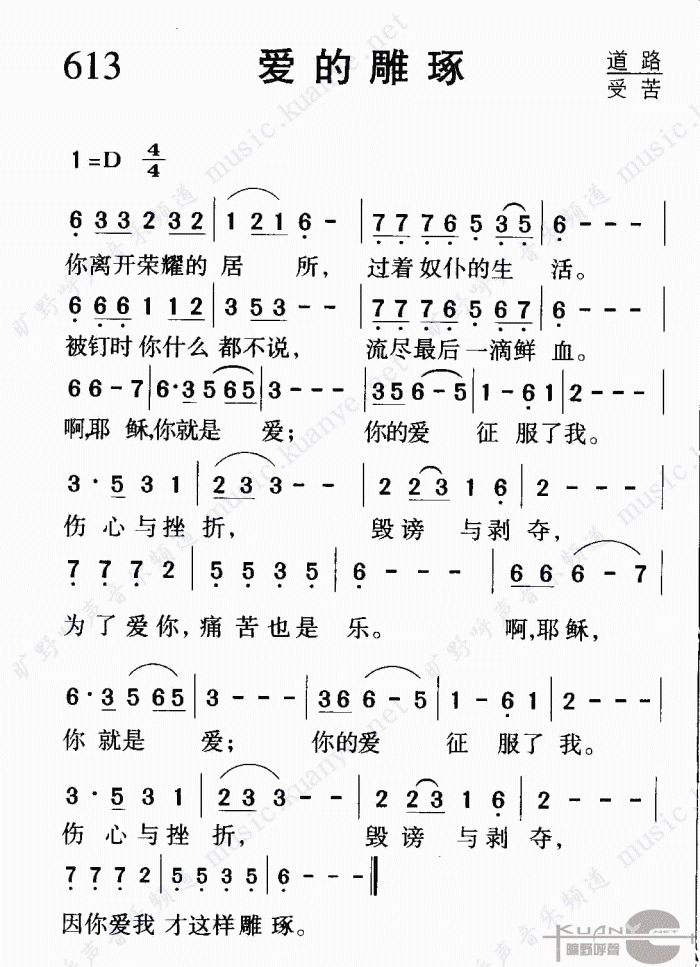 613 爱的雕琢 道路
受苦
1=D 4/4
6 3 3 2 3 2 | 1 2 1 6 - | 7 7 7 6 5 3 5 | 6 - - - |
你离开荣耀的 居 所， 过着奴仆的生 活。
6 6 6 1 1 2 | 3 5 3 - - | 7 7 7 6 5 6 7 | 6 - - - |
被钉时你什么 都不说， 流尽最后一滴鲜 血。
6 6 - 7 | 6 · 3 5 6 5 | 3 - - - | 3 5 6 - 5 | 1 - 6 1 | 2 - - - |
啊,耶 稣,你就是 爱； 你的爱 征 服了我。
3 · 5 3 1 | 2 3 3 - - | 2 2 3 1 6 | 2 - - - |
伤 心与挫 折， 毁谤 与剥夺，
7 7 7 2 | 5 5 3 5 | 6 - - - | 6 6 6 - 7 |
为了爱你，痛苦也是 乐。 啊,耶稣，
6 · 3 5 6 5 | 3 - - - | 3 6 6 - 5 | 1 - 6 1 | 2 - - - |
你 就是 爱； 你的爱 征 服了我。
3 · 5 3 1 | 2 3 3 - - | 2 2 3 1 6 | 2 - - - |
伤 心与挫 折， 毁谤 与剥夺，
7 7 7 2 | 5 5 3 5 | 6 - - - ‖
因你爱我 才这样雕 琢。
旷野呼声音乐频道 music.kuanye.net
KUANYE.NET
曠野呼聲